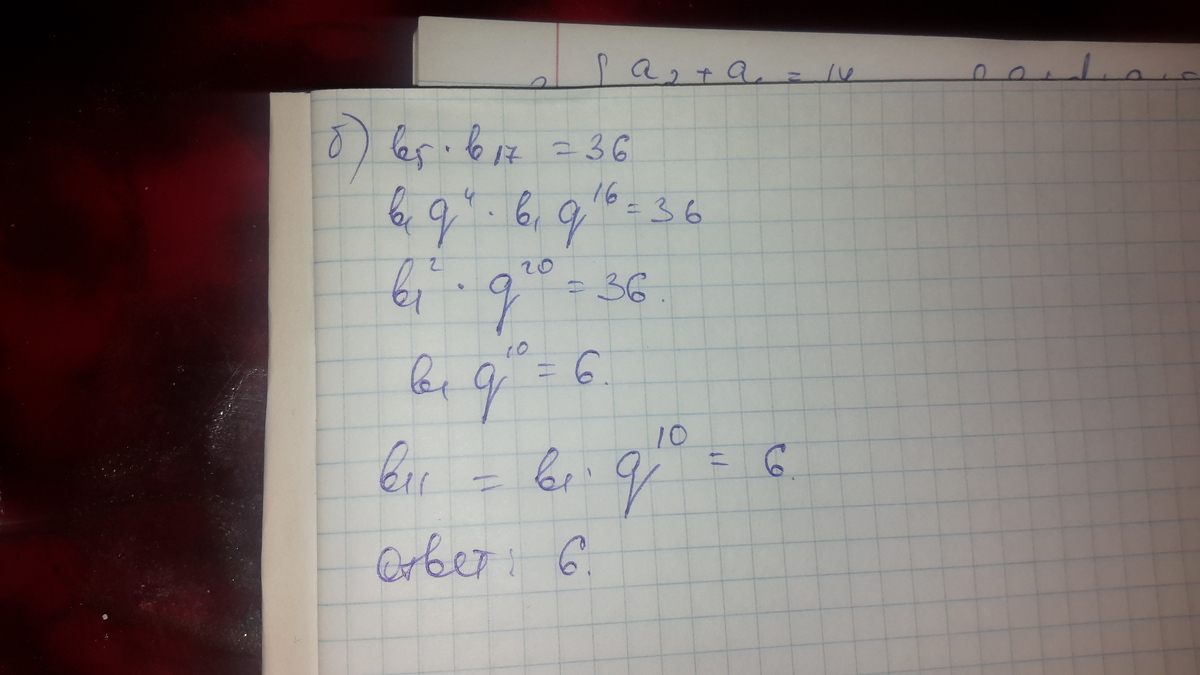 { a₂ + a₁ = 14
б) b₅ · b₁₇ = 36
b₁ q⁴ · b₁ q¹⁶ = 36
b₁² · q²⁰ = 36.
b₁ q¹⁰ = 6.
b₁₁ = b₁ · q¹⁰ = 6.
Ответ: 6.